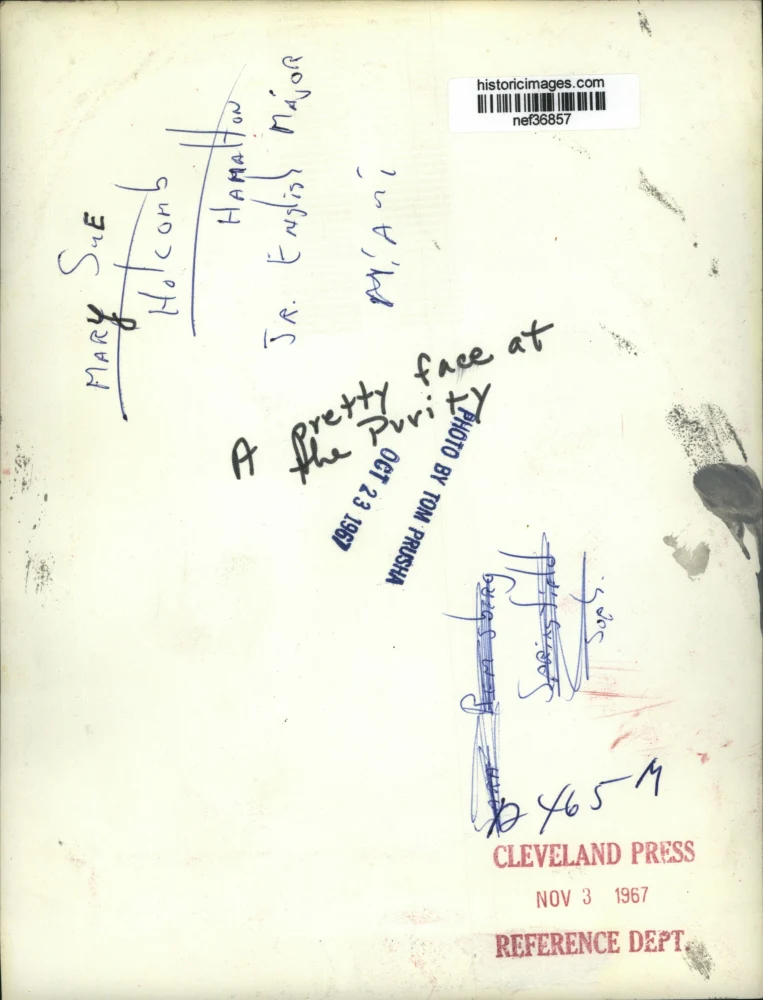 historicimages.com
nef36857
MARY SUE
Holcomb
HAMAltON
JR. ENglish Major
MiAMi
A pretty face at
the Purity
PHOTO BY TOM PRUSHA
OCT 23 1967
SPRINGFIELD
SOPH.
465-M
CLEVELAND PRESS
NOV 3 1967
REFERENCE DEPT.